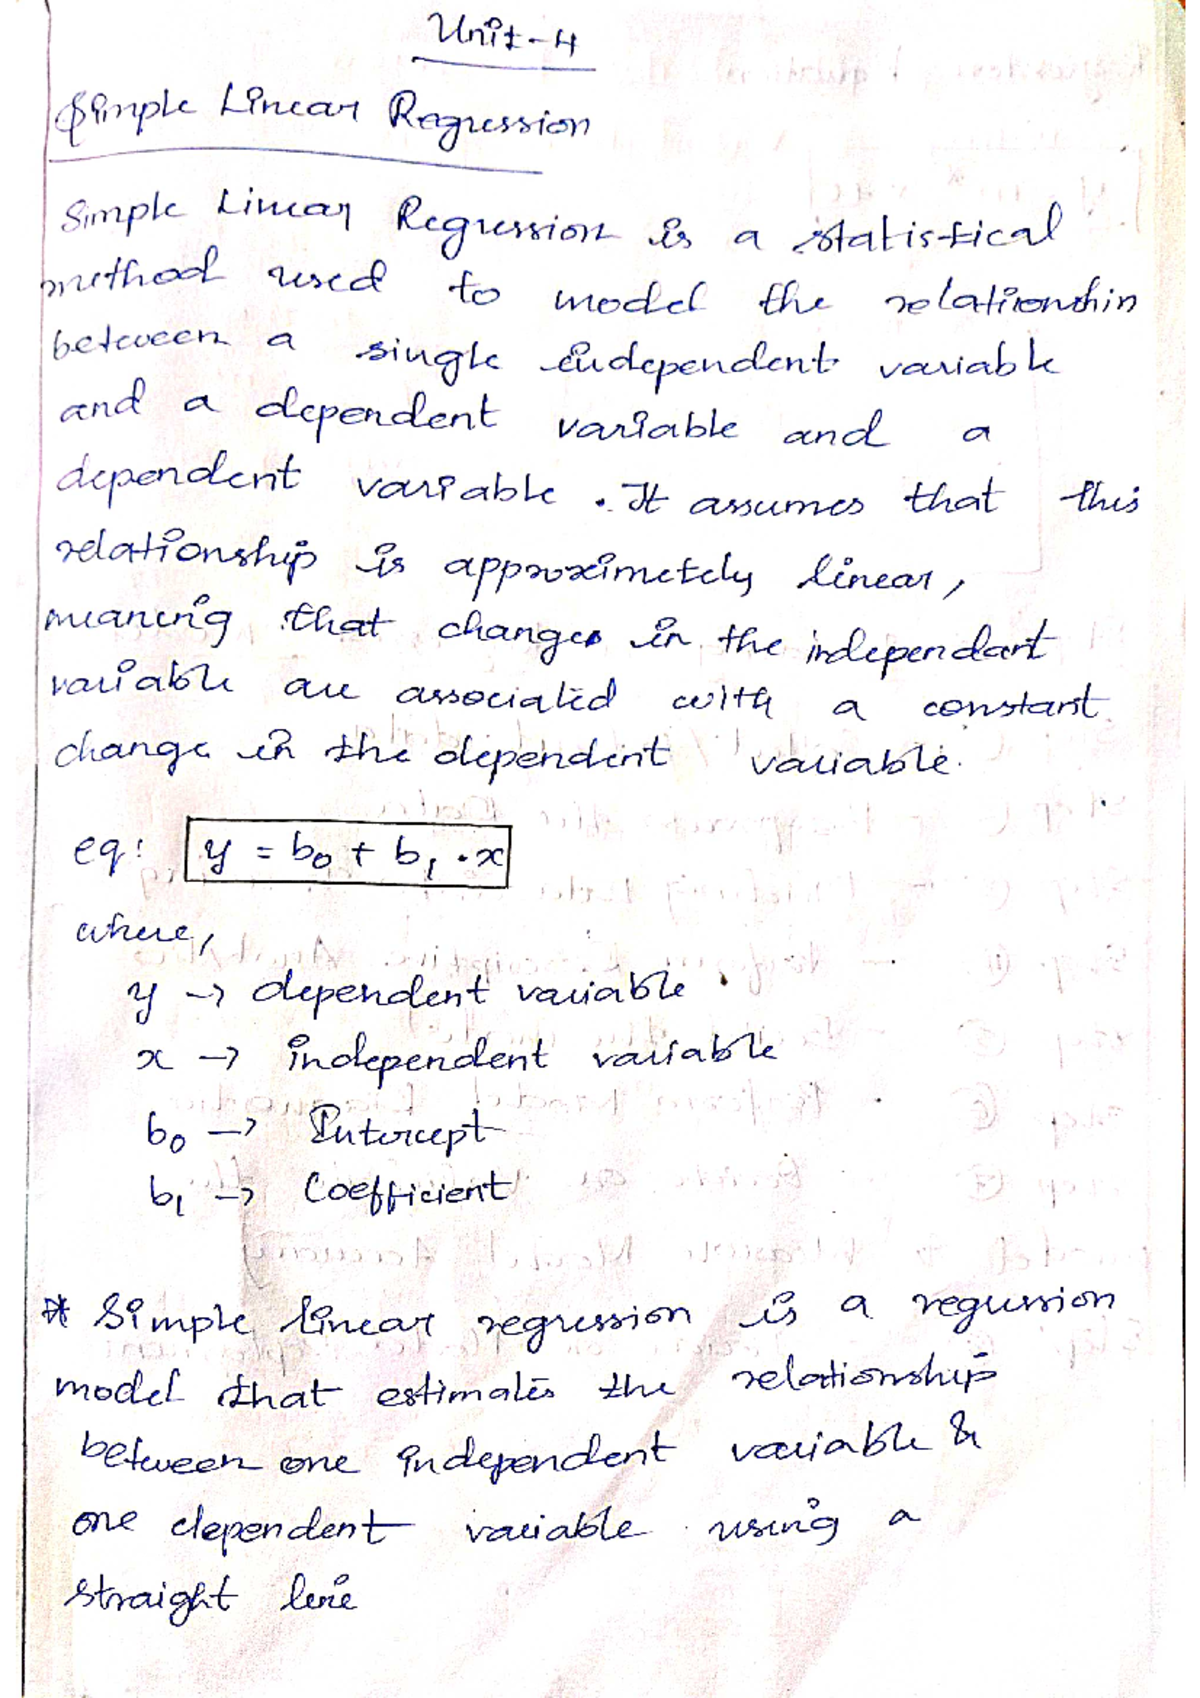 Unit-4
Simple Linear Regression
Simple Linear Regression is a statistical
method used to model the relationship
between a single independent variable
and a dependent variable and a
dependent variable. It assumes that this
relationship is approximetely linear,
meaning that changes in the independant
variable are associated with a constant
change in the dependent variable.
eq: y = b0 + b1 . x
where,
y → dependent variable
x → independent variable
b0 → Intercept
b1 → Coefficient
* Simple linear regression is a regression
model that estimates the relationship
between one independent variable &
one dependent variable using a
straight line